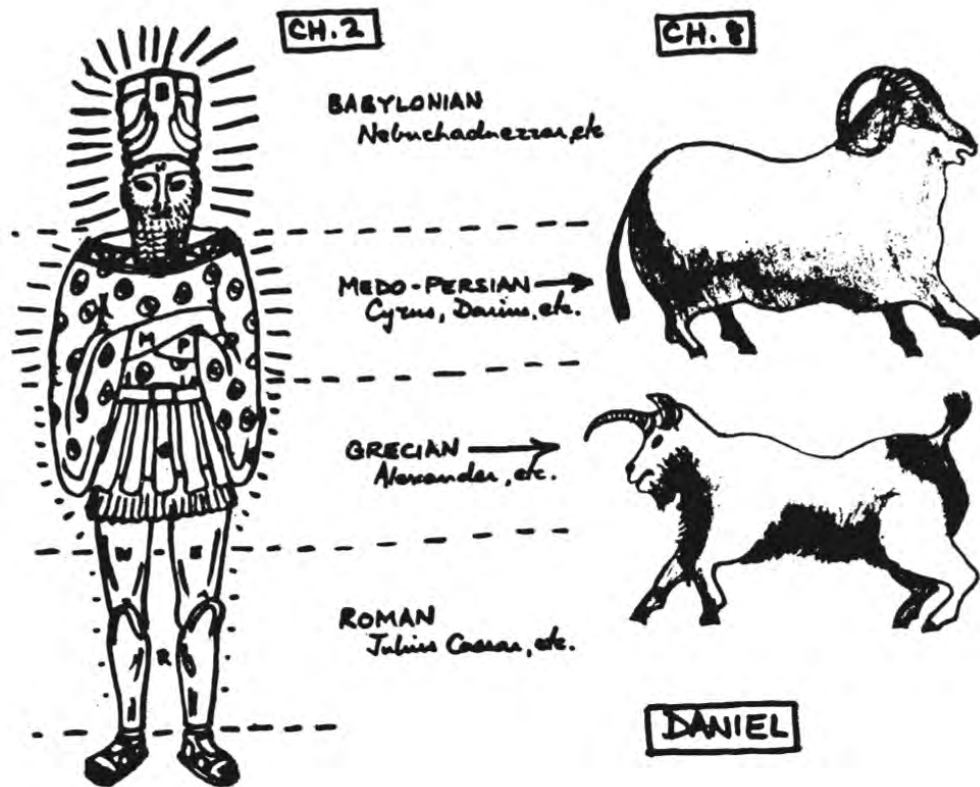 CH. 2
CH. 8
BABYLONIAN
Nebuchadnezzar, etc
MEDO-PERSIAN
Cyrus, Darius, etc.
GRECIAN
Alexander, etc.
ROMAN
Julius Caesar, etc.
DANIEL
B
M P
W E
R